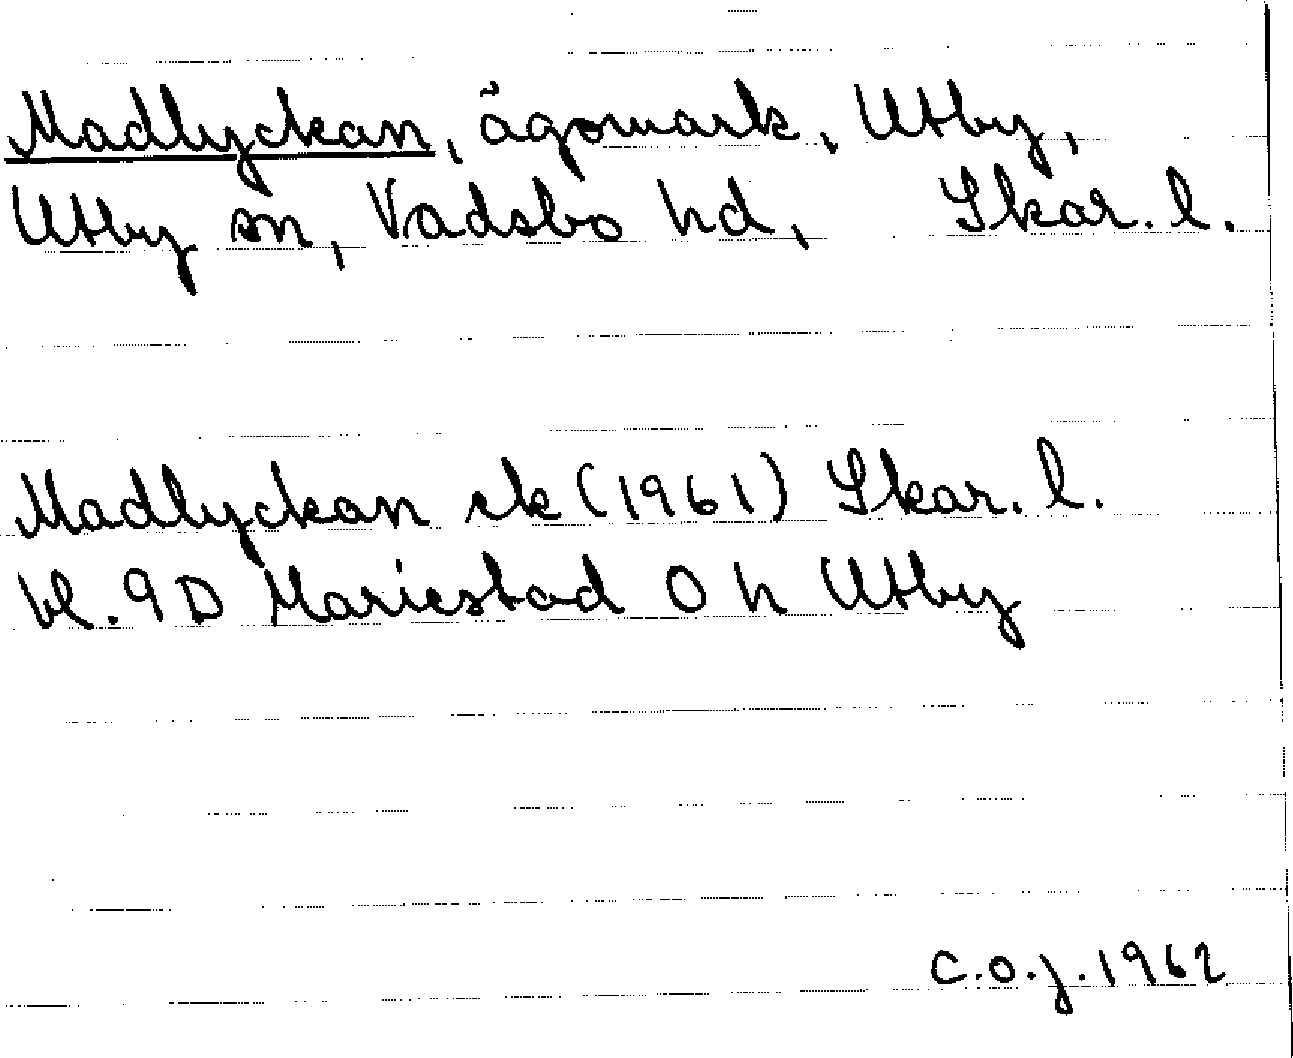 Madlyckan, ägomark, Utby,
Utby sn, Vadsbo hd, Skar. l.
Madlyckan ek (1961) Skar. l.
bl. 9D Mariestad O h Utby
C.O.J. 1962